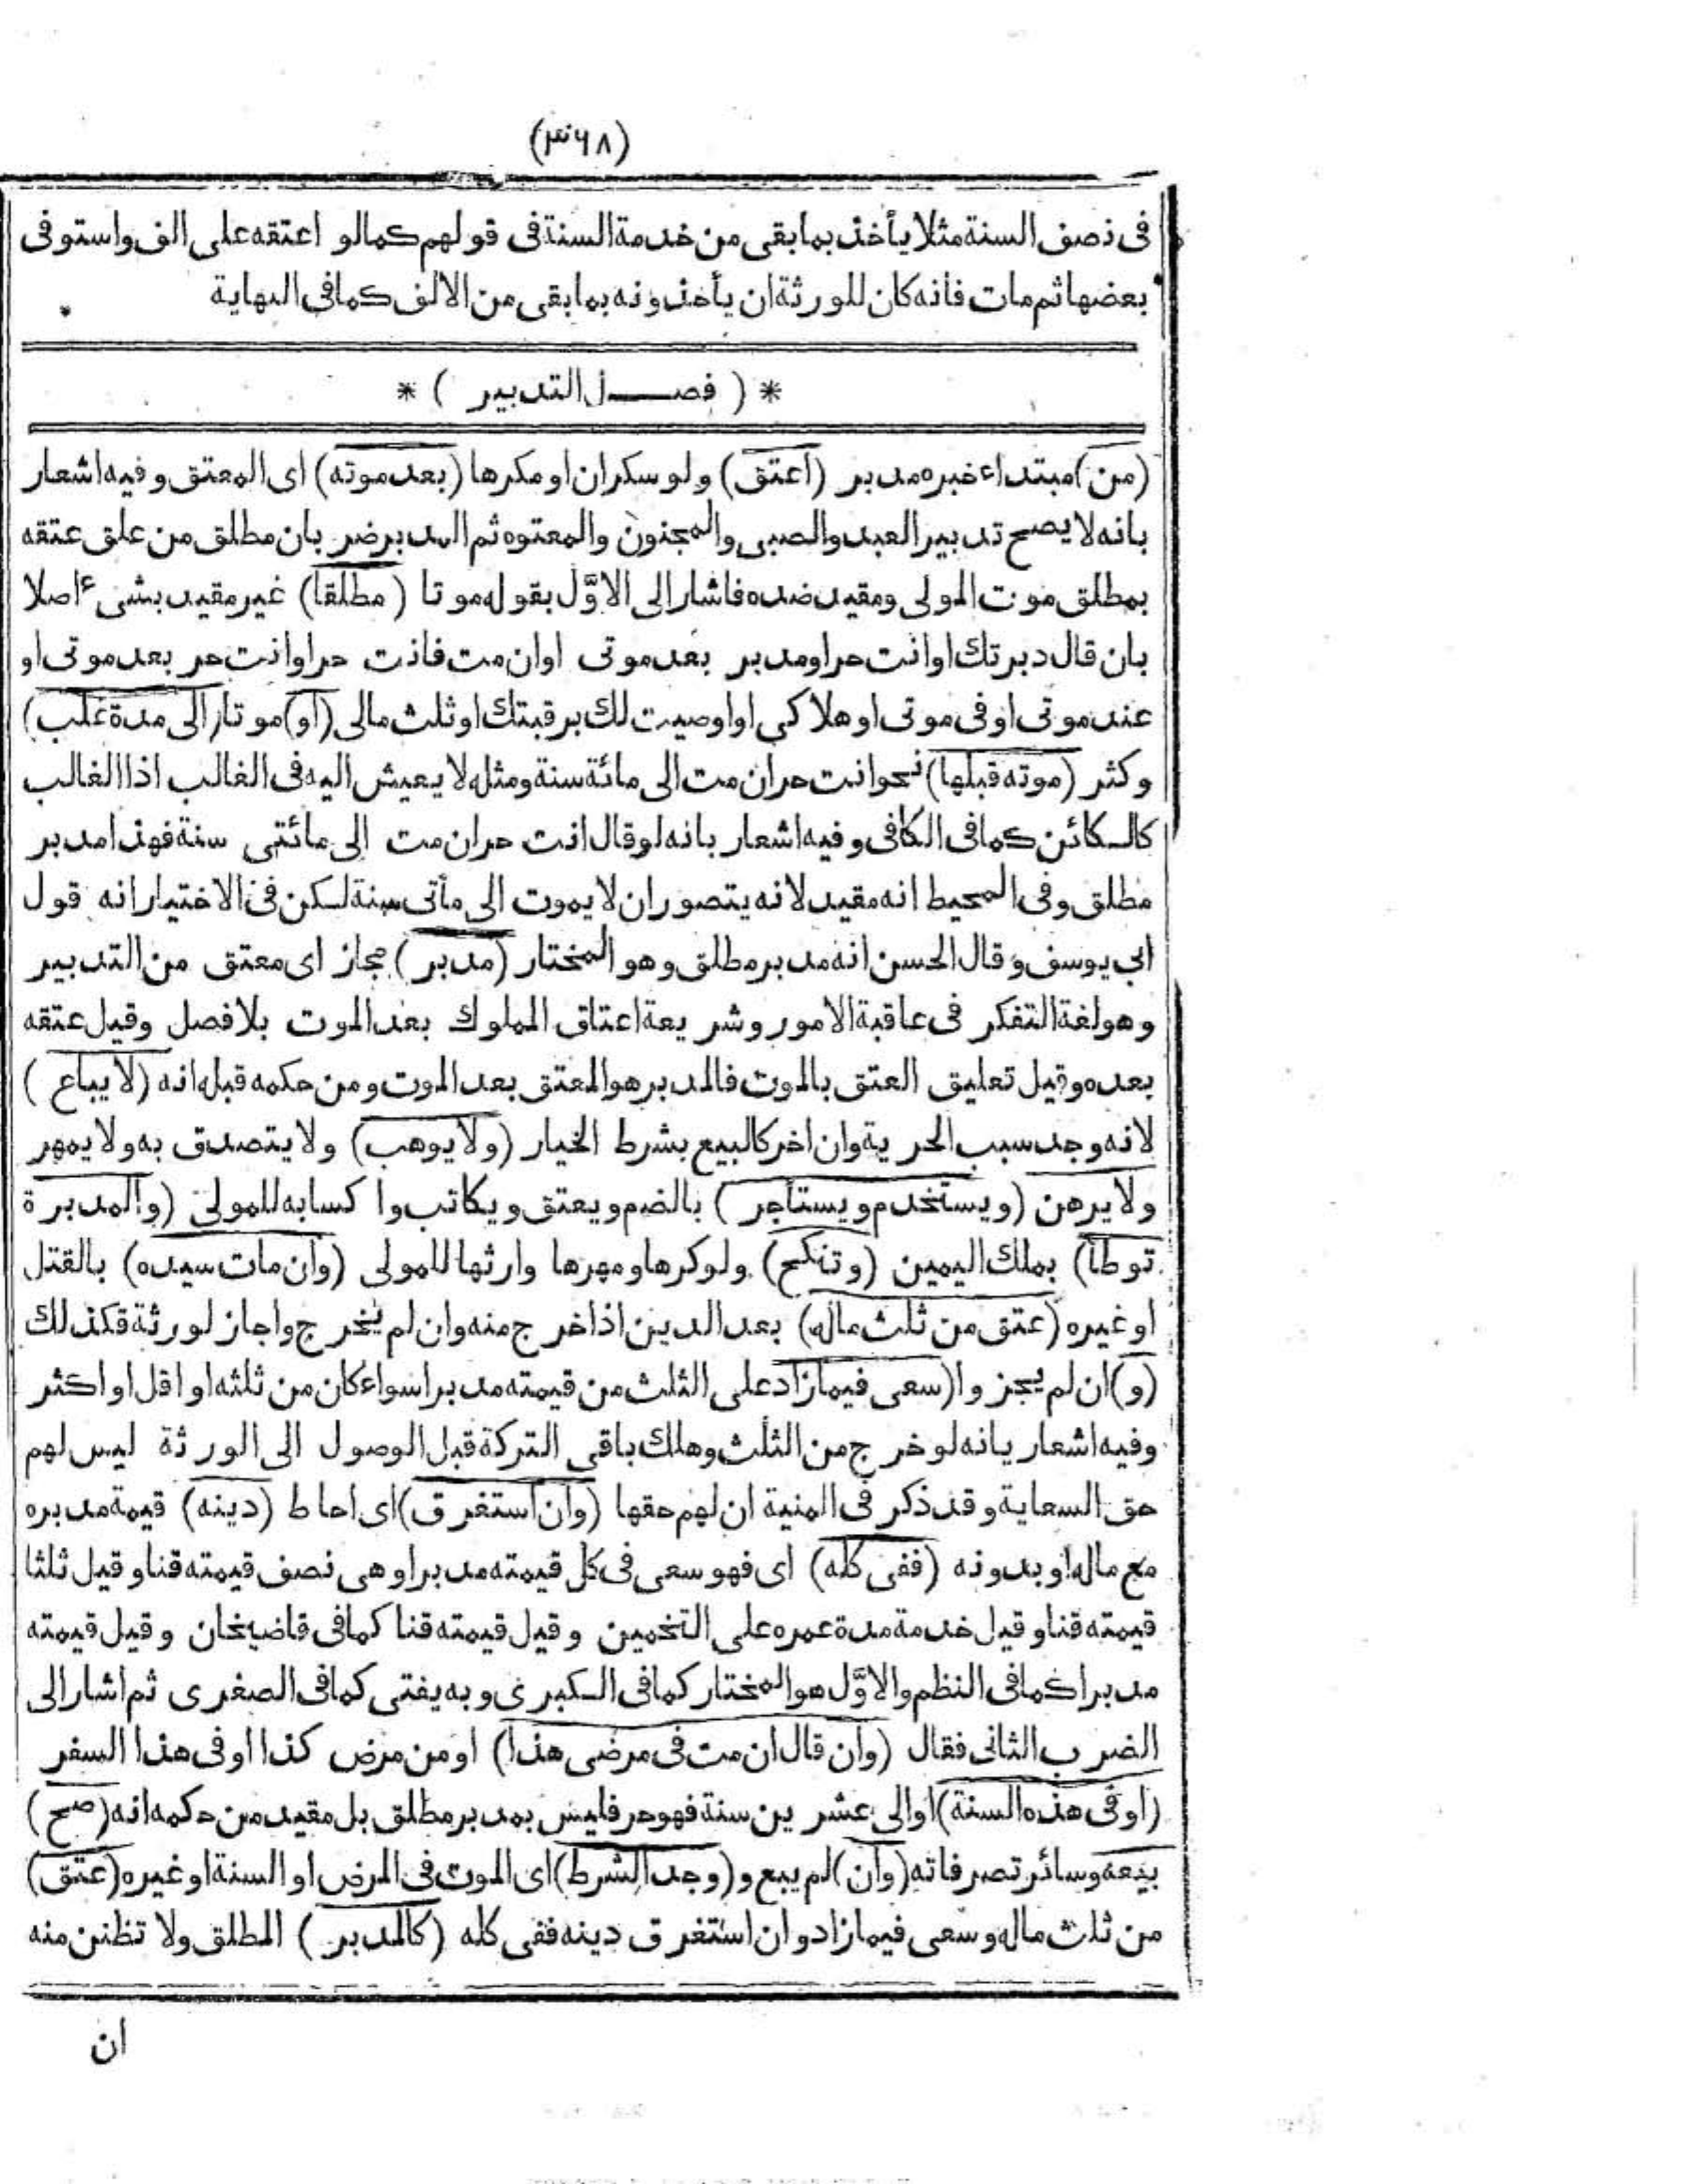 (٣٦٨)
فى نصف السنة مثلا يأخذ بما بقى من خدمة السنة فى قولهم كما لو اعتقه على الف واستوفى
بعضها ثم مات فانه كان للورثة ان يأخذونه بما بقى من الالف كما فى النهاية
* ( فصـــل التدبير ) *
(من) مبتداء خبره مدبر (اعتق) ولو سكران او مكرها (بعد موته) اى المعتق وفيه اشعار
بانه لا يصح تدبير العبد والصبى والمجنون والمعتوه ثم المدبر ضربان مطلق من علق عتقه
بمطلق موت المولى ومقيد ضده فاشار الى الاوّل بقوله موتا (مطلقا) غير مقيد بشىء اصلا
بان قال دبرتك او انت حر او مدبر بعد موتى او ان مت فانت حر او انت حر بعد موتى او
عند موتى او فى موتى او هلاكى او اوصيت لك برقبتك او ثلث مالى (او) موتا (الى مدة غلب)
وكثر (موته قبلها) نحو انت حر ان مت الى مائة سنة ومثله لا يعيش اليه فى الغالب اذ الغالب
كالكائن كما فى الكافى وفيه اشعار بانه لو قال انت حر ان مت الى مائتى سنة فهذا مدبر
مطلق وفى المحيط انه مقيد لانه يتصور ان لا يموت الى مأتى سنة لكن فى الاختيار انه قول
ابى يوسف وقال الحسن انه مدبر مطلق وهو المختار (مدبر) مجاز اى معتق من التدبير
وهو لغة التفكر فى عاقبة الامور وشريعة اعتاق المملوك بعد الموت بلا فصل وقيل عتقه
بعده وقيل تعليق العتق بالموت فالمدبر هو المعتق بعد الموت ومن حكمه قبله انه (لا يباع)
لانه وجد سبب الحرية وان اخر كالبيع بشرط الخيار (ولا يوهب) ولا يتصدق به ولا يمهر
ولا يرهن (ويستخدم ويستأجر) بالضم ويعتق ويكاتب واكسابه للمولى (والمدبرة
توطأ) بملك اليمين (وتنكح) ولو كرها ومهرها وارثها للمولى (وان مات سيده) بالقتل
او غيره (عتق من ثلث ماله) بعد الدين اذا خرج منه وان لم يخرج واجاز لورثة فكذلك
(و) ان لم يجزوا (سعى فيما زاد على الثلث من قيمته مدبرا سواء كان من ثلثه او اقل او اكثر
وفيه اشعار بانه لو خرج من الثلث وهلك باقى التركة قبل الوصول الى الورثة ليس لهم
حق السعاية وقد ذكر فى المنية ان لهم حقها (وان استغرق) اى احاط (دينه) قيمة مدبره
مع ماله او بدونه (ففى كله) اى فهو سعى فى كل قيمته مدبرا وهى نصف قيمته قنا وقيل ثلثا
قيمته قنا وقيل خدمة مدة عمره على التخمين وقيل قيمته قنا كما فى قاضيخان وقيل قيمته
مدبرا كما فى النظم والاوّل هو المختار كما فى الكبرى وبه يفتى كما فى الصغرى ثم اشار الى
الضرب الثانى فقال (وان قال ان مت فى مرضى هذا) او من مرض كذا او فى هذا السفر
(او فى هذه السنة) او الى عشرين سنة فهو حر فليس بمدبر مطلق بل مقيد من حكمه انه (صح)
بيعه وسائر تصرفاته (وان) لم يبع و (وجد الشرط) اى الموت فى المرض او السنة او غيره (عتق)
من ثلث ماله وسعى فيما زاد وان استغرق دينه ففى كله (كالمدبر) المطلق ولا تظنن منه
ان